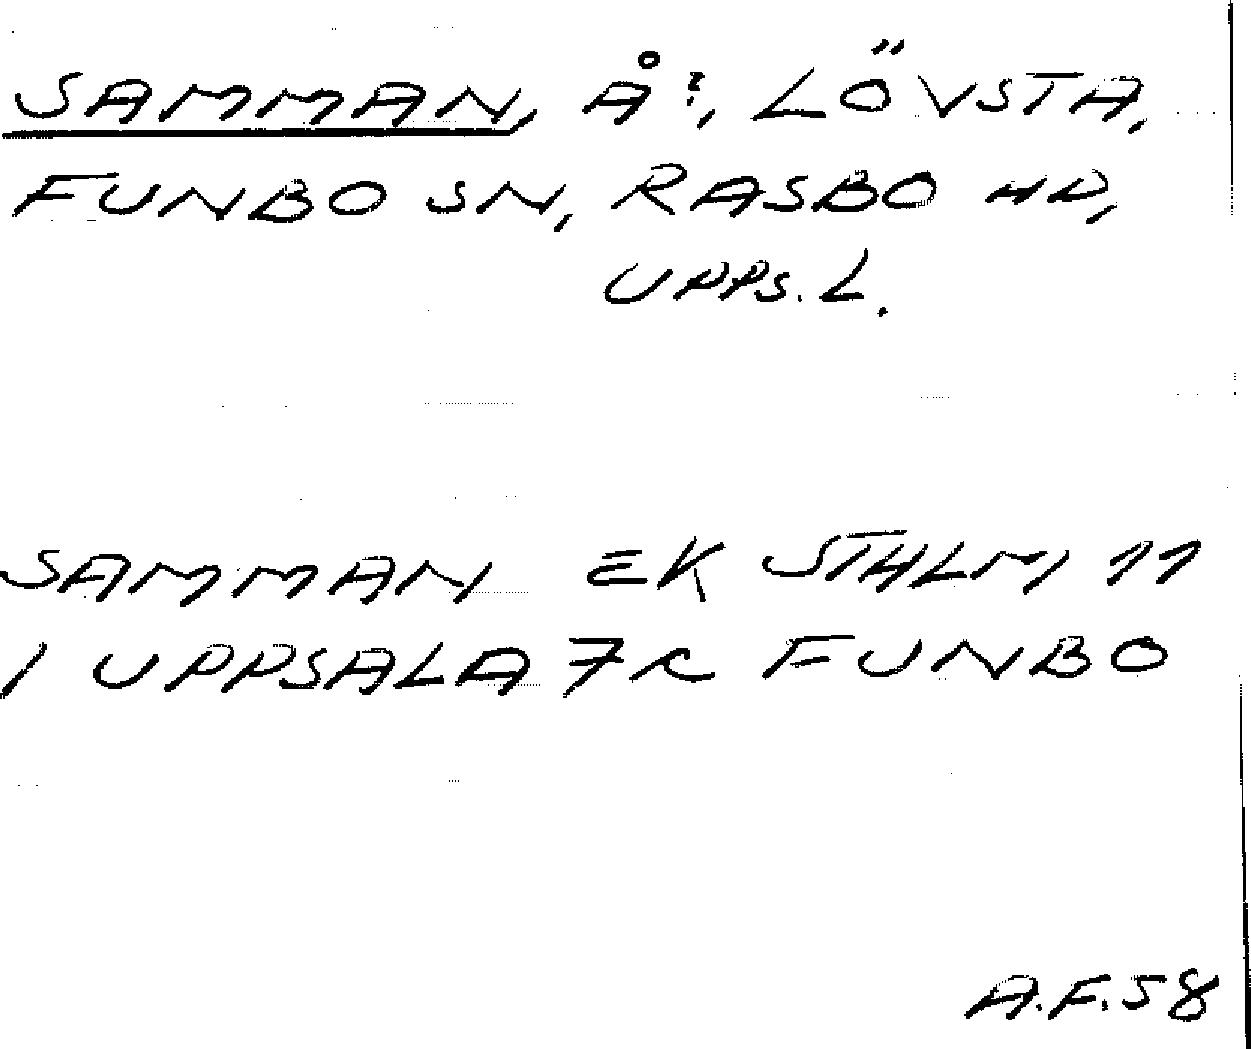 SAMMAN, Å?, LÖVSTA,
FUNBO SN, RASBO HD,
UPPS. L.
SAMMAN EK STHLM 11
I UPPSALA 7C FUNBO
A.F. 58